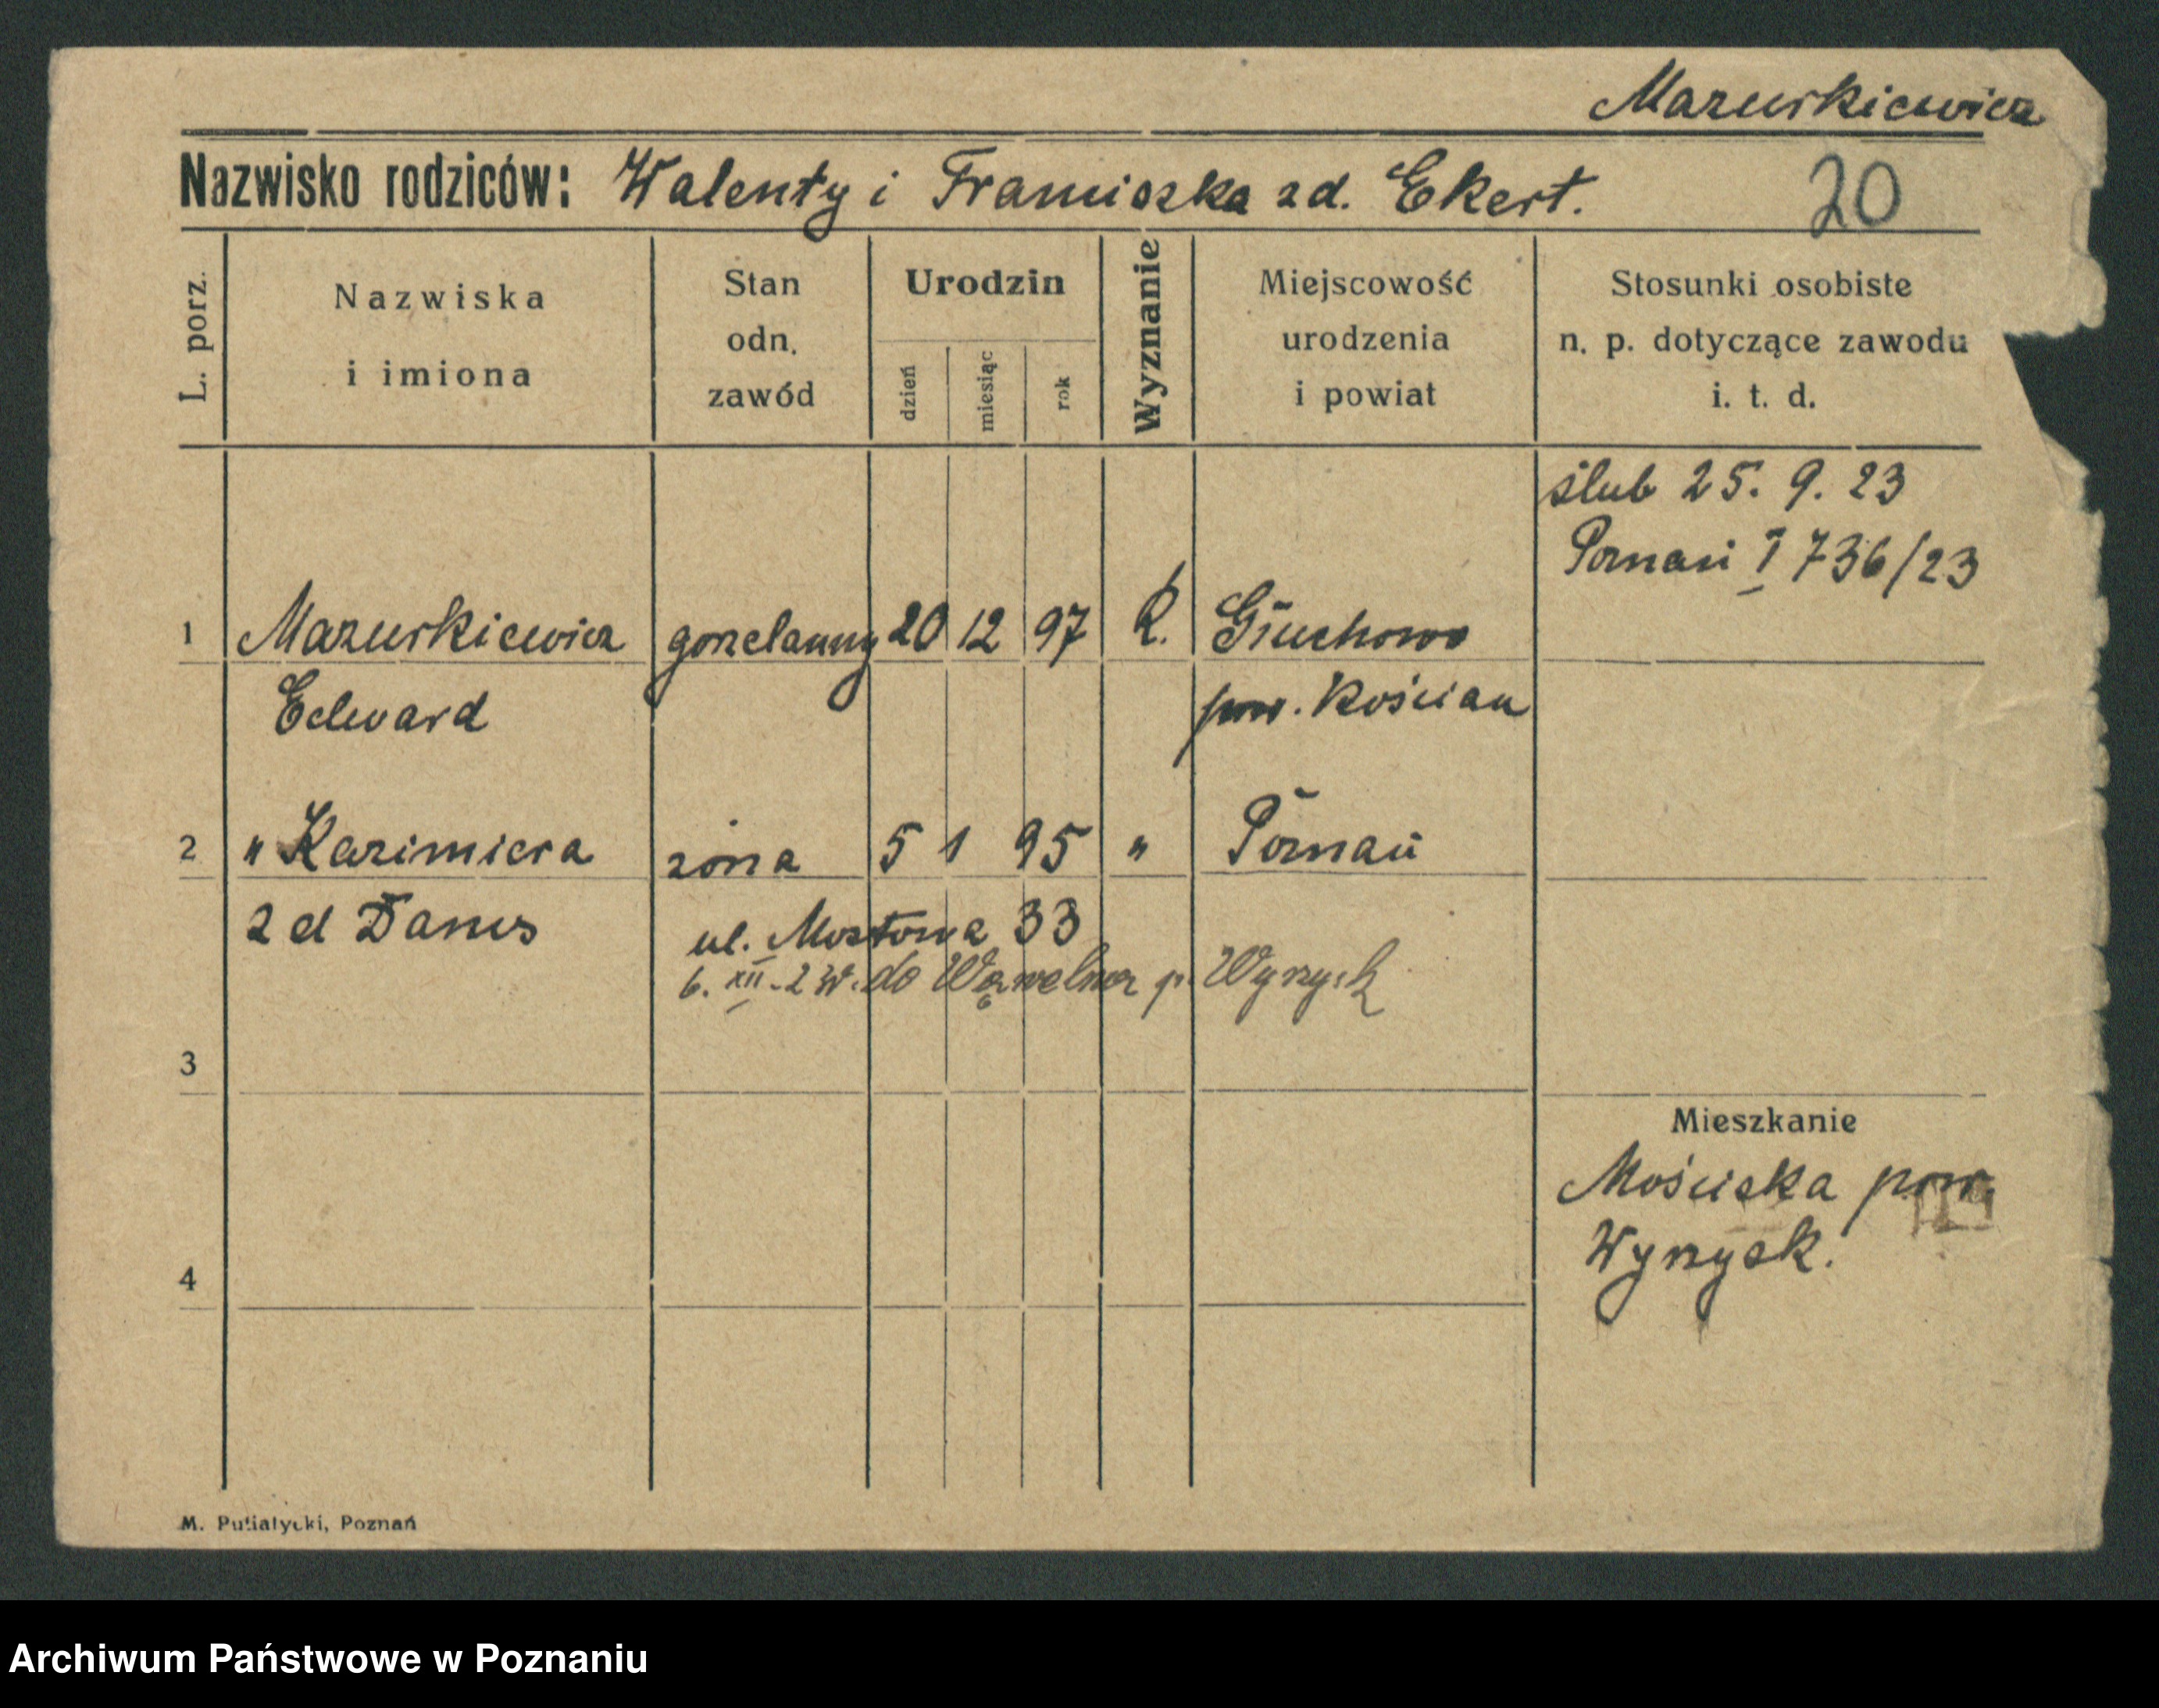 Mazurkiewicz
Nazwisko rodziców: Walenty i Franciszka zd. Ekert. 20
L. porz.
Nazwiska
i imiona
Stan
odn.
zawód
Urodzin
dzień
miesiąc
rok
Wyznanie
Miejscowość
urodzenia
i powiat
Stosunki osobiste
n. p. dotyczące zawodu
i. t. d.
ślub 25. 9. 23
Poznań I 736/23
1 Mazurkiewicz gorzelanny 20 12 97 k. Głuchowo
Edward pow. Kościan
2 " Kazimiera żona 5 1 95 " Poznań
zd Danes
ul. Mostowa 33
6. XII. 24. do Wąwelna p. Wyrzysk
3
Mieszkanie
Mościska pow.
Wyrzysk.
4
M. Putiatycki, Poznań
Archiwum Państwowe w Poznaniu